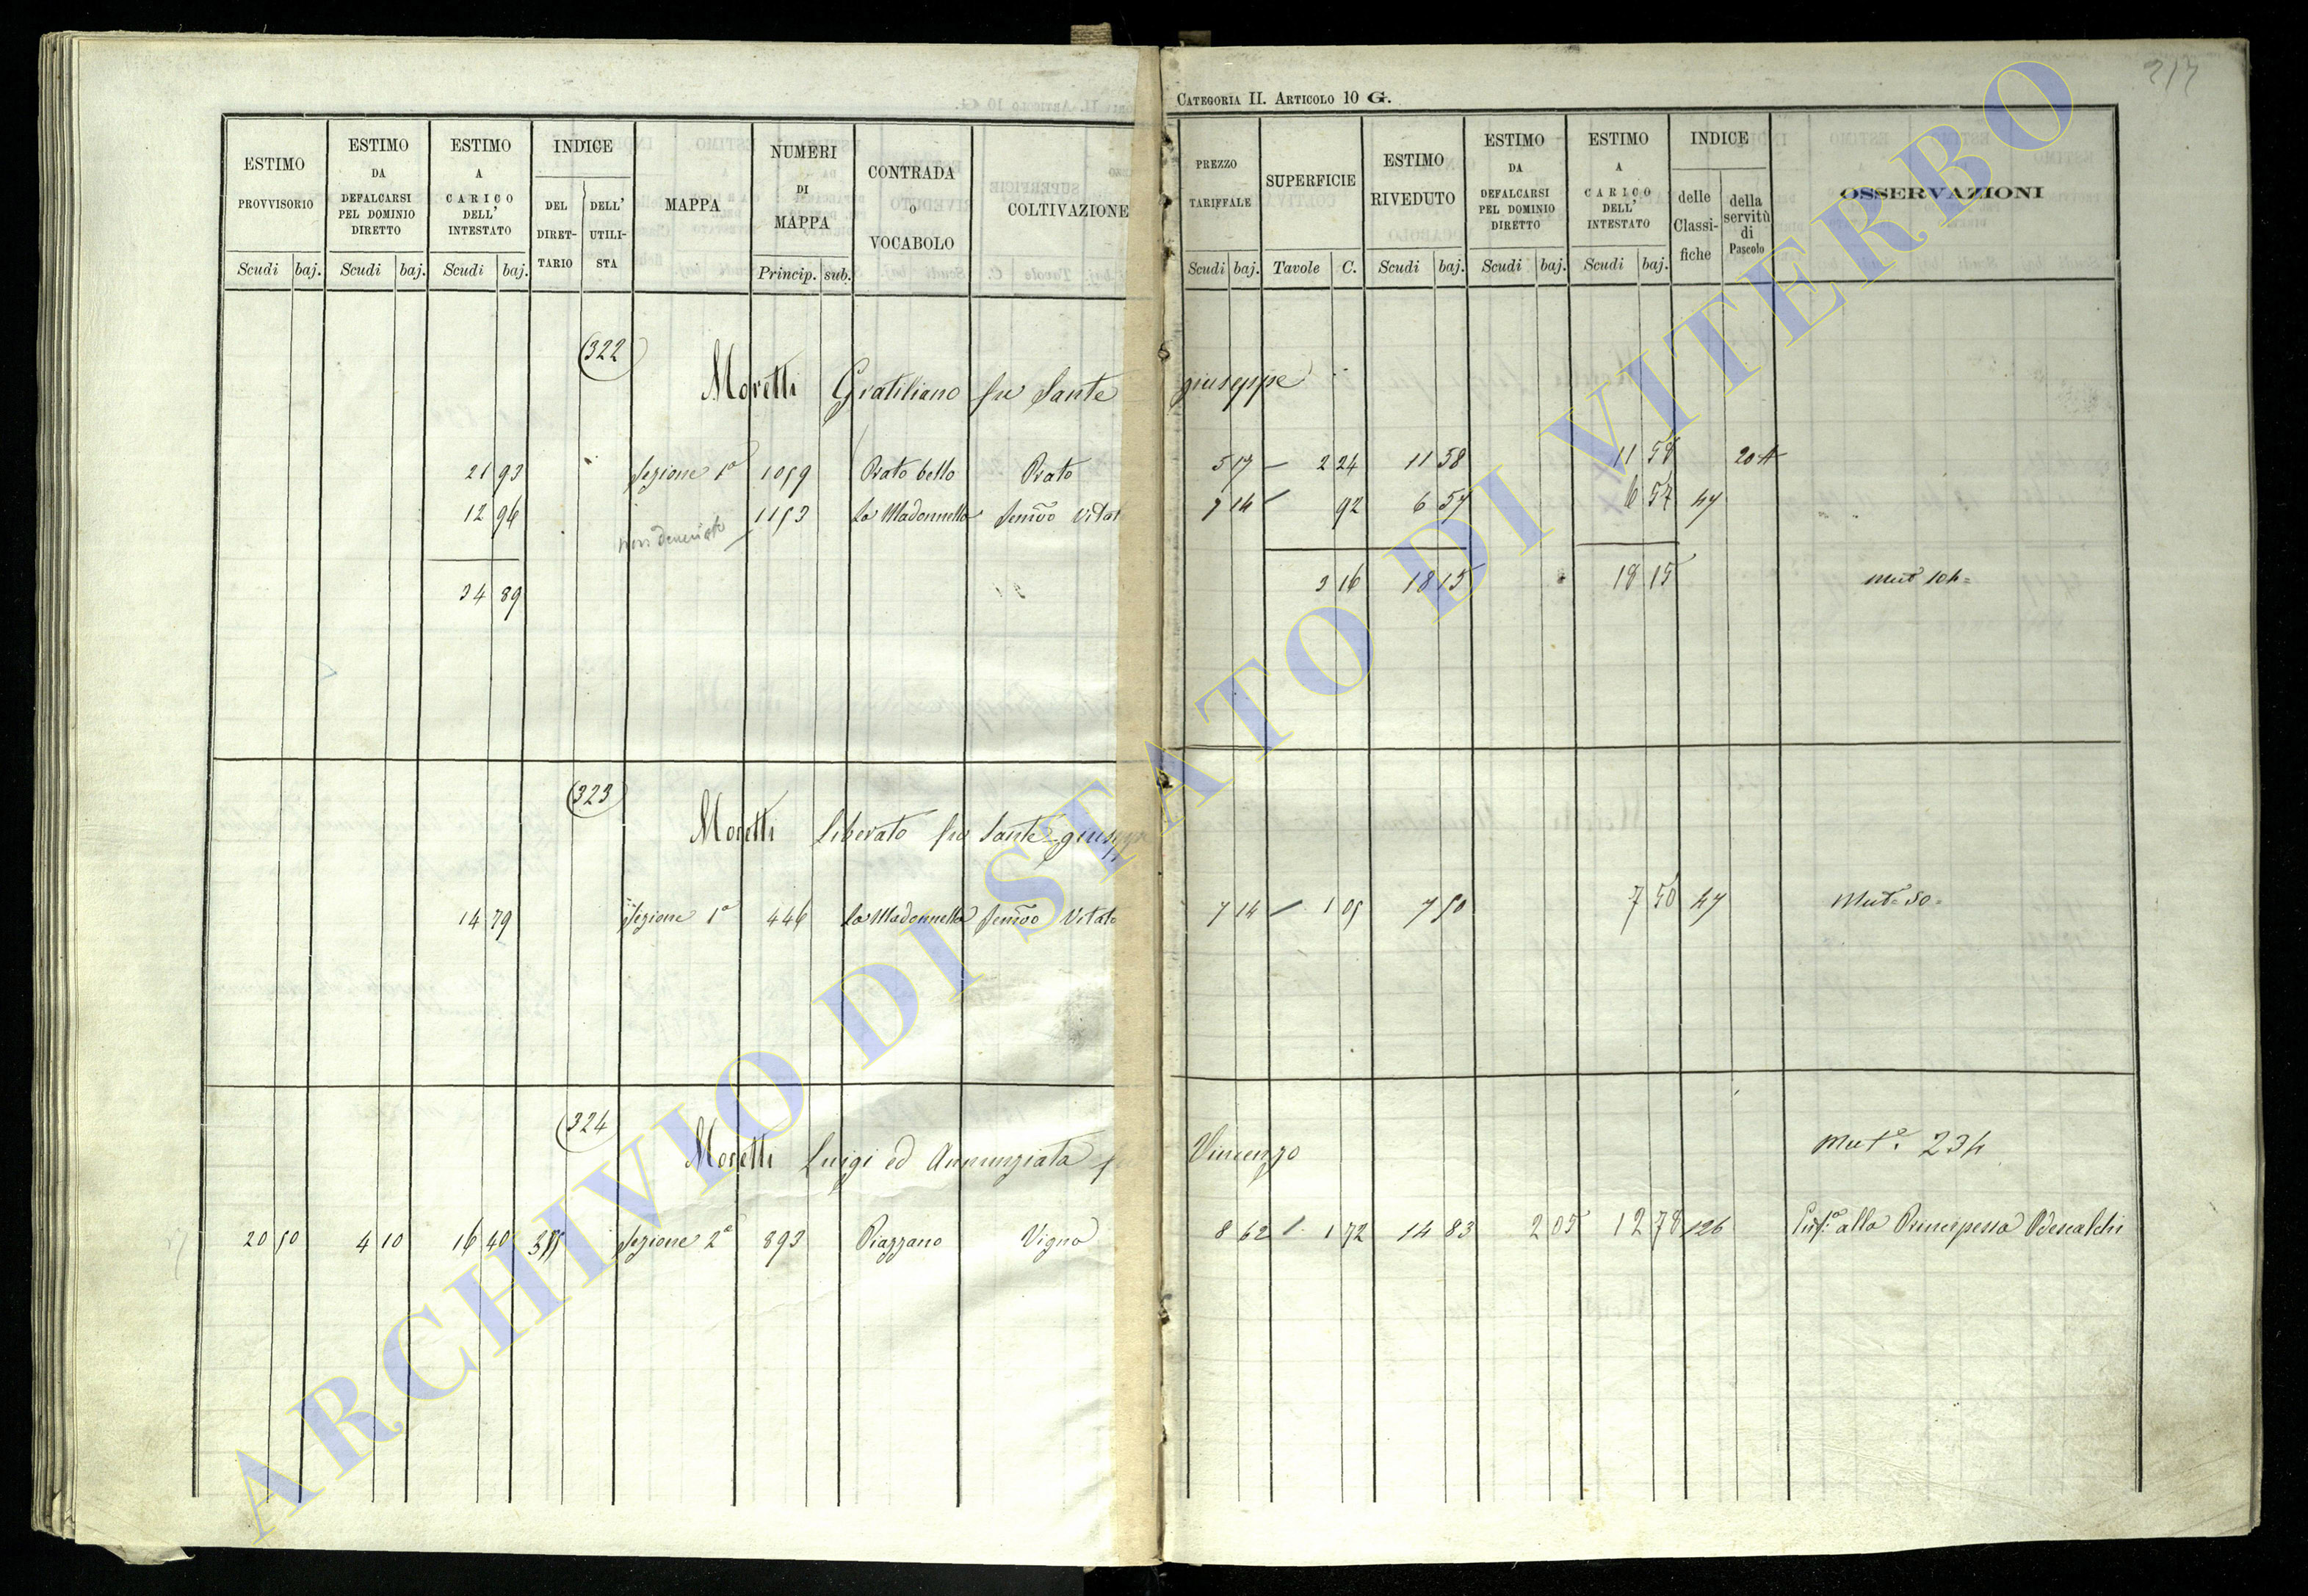 217
CATEGORIA II. ARTICOLO 10 G.
ESTIMO PROVVISORIO Scudi baj.
ESTIMO DA DEFALCARSI PEL DOMINIO DIRETTO Scudi baj.
ESTIMO A CARICO DELL' INTESTATO Scudi baj.
INDICE DEL DIRETTARIO DELL' UTILISTA
MAPPA
NUMERI DI MAPPA Princip. sub.
CONTRADA O VOCABOLO
COLTIVAZIONE
PREZZO TARIFFALE Scudi baj.
SUPERFICIE Tavole C.
ESTIMO RIVEDUTO Scudi baj.
ESTIMO DA DEFALCARSI PEL DOMINIO DIRETTO Scudi baj.
ESTIMO A CARICO DELL' INTESTATO Scudi baj.
INDICE delle Classifiche della servitù di Pascolo
OSSERVAZIONI
322
Moretti Gratiliano fu Sante giuseppe
21 93 Sezione 1a 1059 Prato bello Prato 5 17 — 2 24 11 58 11 58 20 A
12 96 1153 La Madonnella Semvo Vitato 7 14 92 6 57 6 57 47
non denunciato
34 89 3 16 18 15 18 15 Mut 104=
323
Moretti Liberato fu Sante giuseppe
14 79 Sezione 1a 446 La Madonnella Semvo Vitato 7 14 1 05 7 50 7 50 47 Mut= 50=
324
Moretti Luigi ed Annunziata f Vincenzo Muta. 234
20 50 4 10 16 40 355 Sezione 2a 893 Piazzano Vigna 8 62 1 72 14 83 2 05 12 78 126 Enfa. alla Principessa Odescalchi
ARCHIVIO DI STATO DI VITERBO